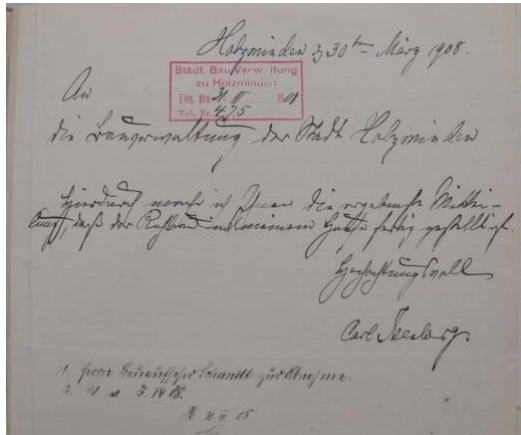 Holzminden d 30ten März 1908.
Städt. Bau-Verwaltung
zu Holzminden
Eing. den 31. III 1908
Tgb. Nr. 475
An
die Bauverwaltung der Stadt Holzminden
Hierdurch mache ich Ihnen die ergebenste Mittei-
lung, daß der Rohbau in meinem Hause fertig gestellt ist.
Hochachtungsvoll
Carl
1. Herrn Bauaufseher Schmidt zur Abnahme.
2.